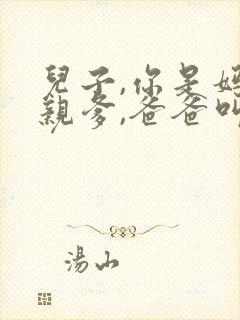 兒子,你是媽
親爹,爸爸叫
湯山